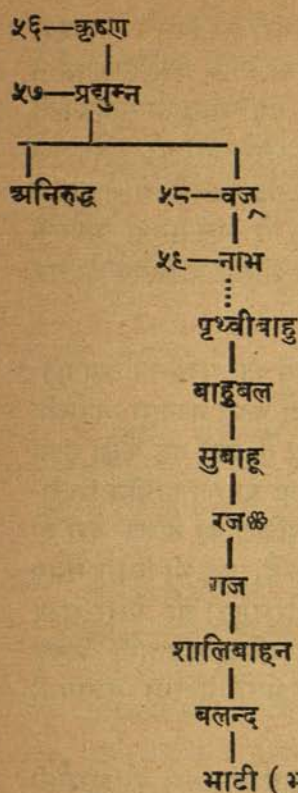 ५६—कृष्ण
५७—प्रद्युम्न
अनिरुद्ध ५८—वज्र
५९—नाभ
पृथ्वीबाहु
बाहुबल
सुबाहू
रज❀
गज
शालिबाहन
बलन्द
भाटी ( भ